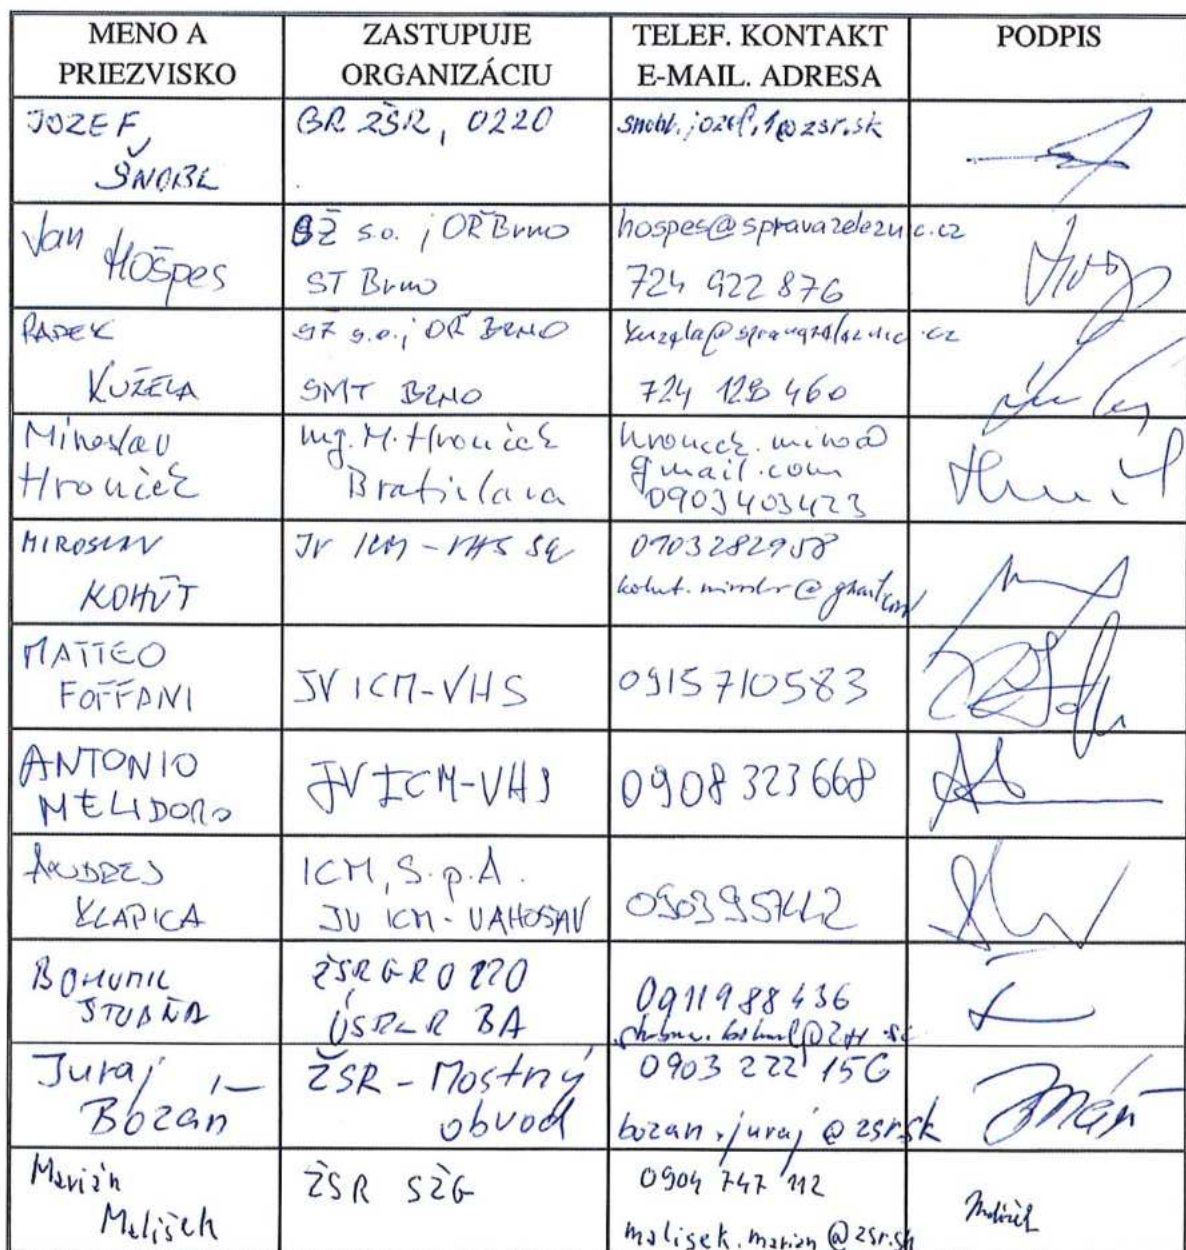 MENO A PRIEZVISKO
ZASTUPUJE ORGANIZÁCIU
TELEF. KONTAKT E-MAIL. ADRESA
PODPIS
JOZEF ŠNOBL
GR ŽSR, 0220
snobl.jozef.1@zsr.sk
Jan Hošpes
SŽ s.o.; OŘ Brno
ST Brno
hospes@spravazeleznic.cz
724 922 876
RADEK KUŽELA
SŽ s.o.; OŘ BRNO
SMT BRNO
724 129 460
Miroslav Hronček
Ing. M. Hronček
Bratislava
hroncek.miro@
gmail.com
0903403423
MIROSLAV KOHÚT
JV ICM-VHS
0903282958
MATTEO FOFFANI
JV ICM-VHS
0915710583
ANTONIO MELIDORO
JV ICM-VHS
0908 323 668
ANDREJ KLAPICA
ICM, S.p.A.
JV ICM-VAHOSTAV
090395
BOHUMIL STUDŇA
ŽSR GR 0220
BA
0911988436
Juraj Bozáň
ŽSR - Mostný obvod
0903 222 156
bozan.juraj@zsr.sk
Marián Malíšek
ŽSR SŽG
0904 747 112
malisek.marian@zsr.sk